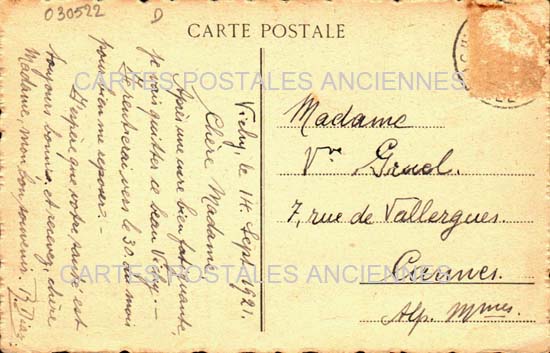 030522
D
CARTE POSTALE
CARTES POSTALES ANCIENNES
CARTES POSTALES ANCIENNES
Vichy, le 14 Sept 1921.
Chère Madame,
Après une cure bien fatigante,
je vais quitter ce beau Vichy —
Je rentrerai vers le 30 du mois
pour bien me reposer. —
J'espère que votre santé est
toujours bonne, et recevez, chère
Madame, mon bon souvenir. B. Diaz
Madame
Vve Gruel.
7, rue de Vallergues.
Cannes.
Alp. Mmes